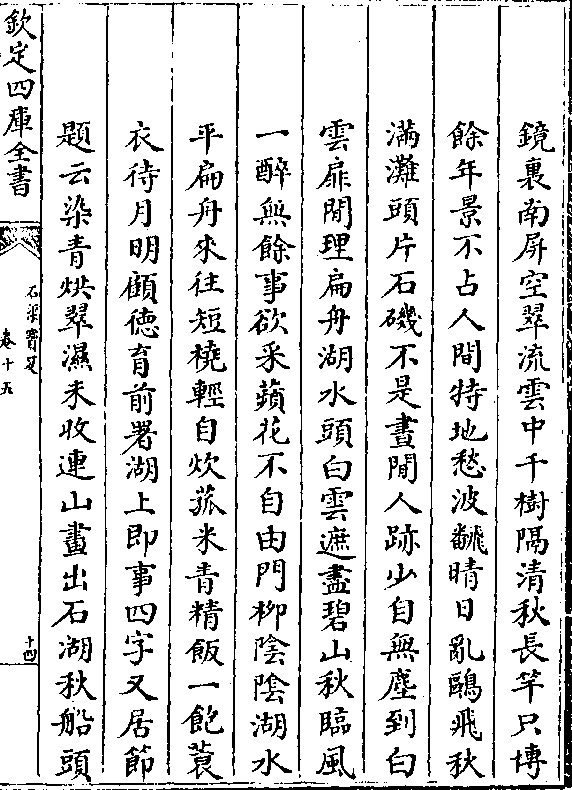 鏡裏南屏空翠流雲中千樹隔清秋長竿只博
餘年景不占人間特地愁波飜晴日亂鷗飛秋
滿灘頭片石磯不是晝間人跡少自無塵到白
雲扉閒理扁舟湖水頭白雲遮盡碧山秋臨風
一醉無餘事欲采蘋花不自由門柳陰陰湖水
平扁舟來往短橈輕自炊菰米青精飯一飽蓑
衣待月明顧徳育前署湖上即事四字又居節
題云染青烘翠濕未收連山畫出石湖秋船頭
欽定四庫全書
石渠寳笈
卷十五
十四